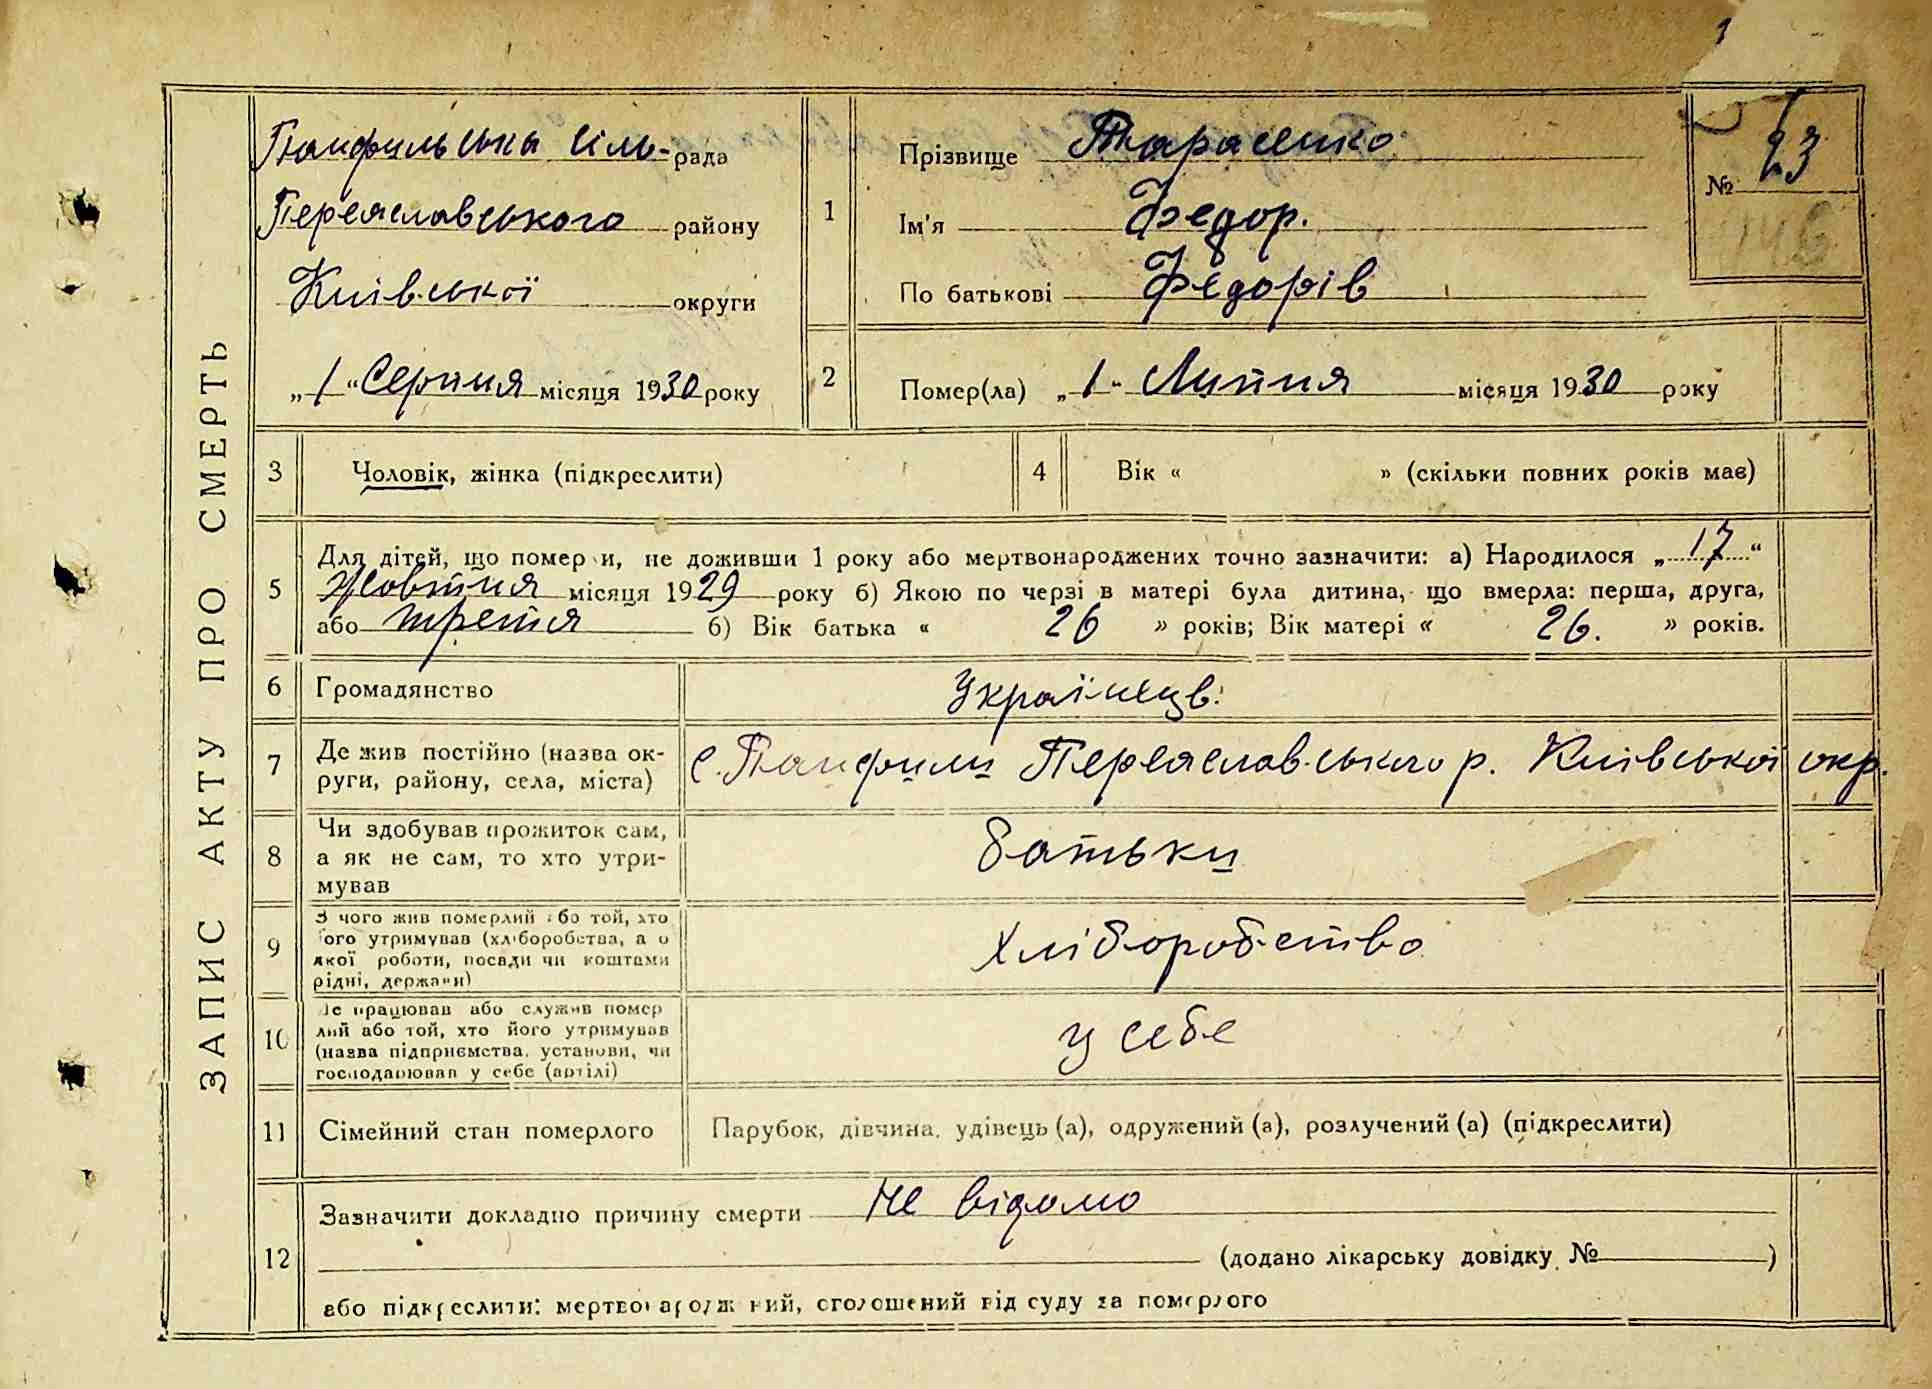 ЗАПИС АКТУ ПРО СМЕРТЬ
Панфильська сіль-рада
Переяславського району
Київської округи
„1“ Серпня місяця 1930 року
1
Прізвище Тарасенко
Ім'я Федор.
По батькові Федорів
№ 23
146
2
Помер(ла) „1“ Липня місяця 1930 року
3
Чоловік, жінка (підкреслити)
4
Вік « » (скільки повних років має)
5
Для дітей, що померли, не доживши 1 року або мертвонароджених точно зазначити: а) Народилося „17“
Жовтня місяця 1929 року б) Якою по черзі в матері була дитина, що вмерла: перша, друга,
або третя б) Вік батька « 26 » років; Вік матері « 26. » років.
6
Громадянство
Українець.
7
Де жив постійно (назва ок-
руги, району, села, міста)
с. Панфили Переяславського р. Київської окр.
8
Чи здобував прожиток сам,
а як не сам, то хто утри-
мував
батьки
9
З чого жив померлий або той, хто
його утримував (хліборобства, а о
якої роботи, посади чи коштами
рідні, держави)
Хліборобство
10
Де працював або служив помер
лий або той, хто його утримував
(назва підприємства, установи, чи
господарював у себе (артілі)
у себе
11
Сімейний стан померлого
Парубок, дівчина, удівець (а), одружений (а), розлучений (а) (підкреслити)
12
Зазначити докладно причину смерти Не відомо
(додано лікарську довідку № )
або підкреслити: мертвонароджений, оголошений від суду за померлого